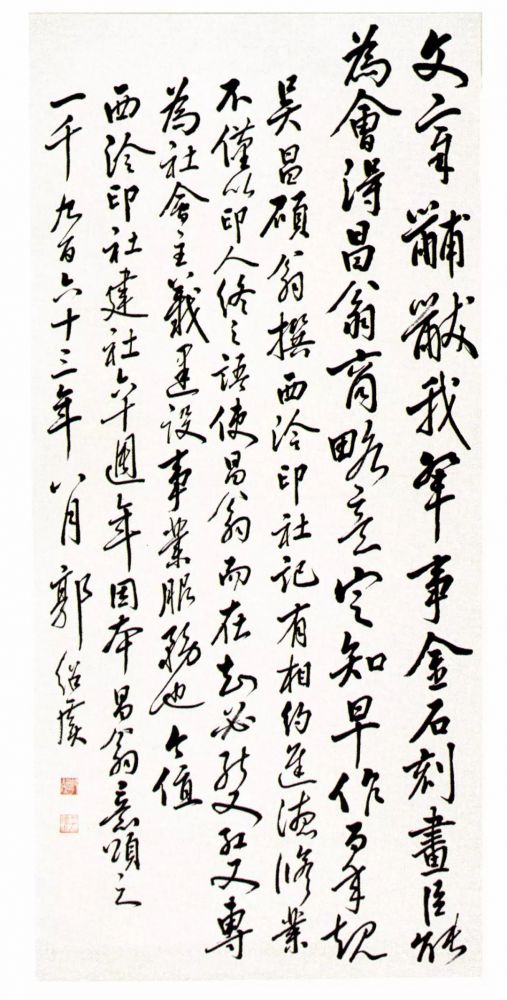 文章黼黻我輩事金石刻畫臣能
為會得昌翁商略意定知早作百年規
吳昌碩翁撰西泠印社記有相約進德修業
不僅以印人終之語使昌翁而在知必能又紅又專
為社會主義建設事業服務也今值
西泠印社建社六十週年因本昌翁意頌之
一千九百六十三年八月郭紹虞